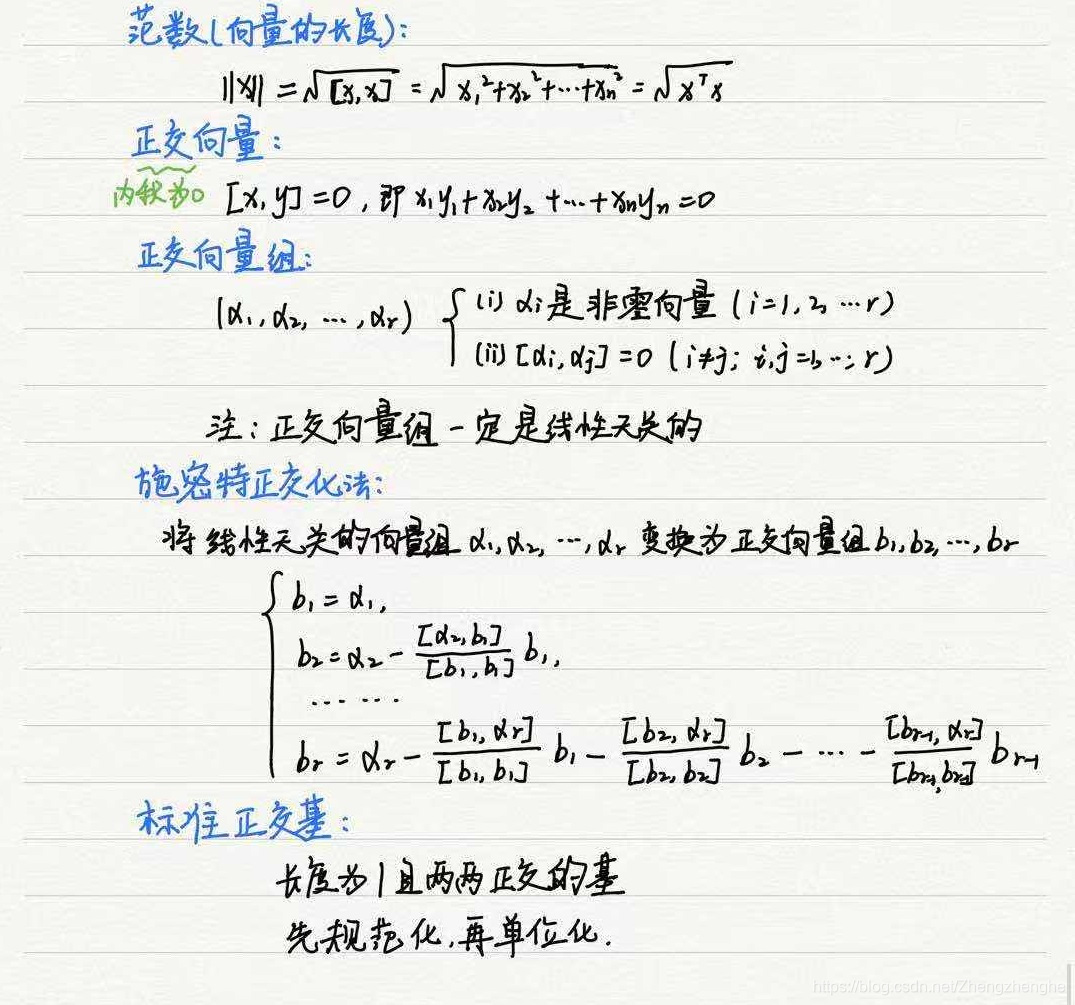 范数(向量的长度):
||x|| = √[x,x] = √x₁²+x₂²+…+xₙ² = √xᵀx
正交向量:
内积为0 [x,y]=0, 即 x₁y₁+x₂y₂+…+xₙyₙ=0
正交向量组:
(α₁,α₂,…,αᵣ) { (i) αᵢ是非零向量 (i=1,2,…r)
(ii) [αᵢ,αⱼ]=0 (i≠j; i,j=1,…,r)
注: 正交向量组一定是线性无关的
施密特正交化法:
将线性无关的向量组 α₁,α₂,…,αᵣ 变换为正交向量组 b₁,b₂,…,bᵣ
{ b₁=α₁,
b₂=α₂-[α₂,b₁]/[b₁,b₁] b₁,
……
bᵣ=αᵣ-[b₁,αᵣ]/[b₁,b₁] b₁-[b₂,αᵣ]/[b₂,b₂] b₂-…-[bᵣ₋₁,αᵣ]/[bᵣ₋₁,bᵣ₋₁] bᵣ₋₁
标准正交基:
长度为1且两两正交的基
先规范化,再单位化.
https://blog.csdn.net/Zhengzhanghai